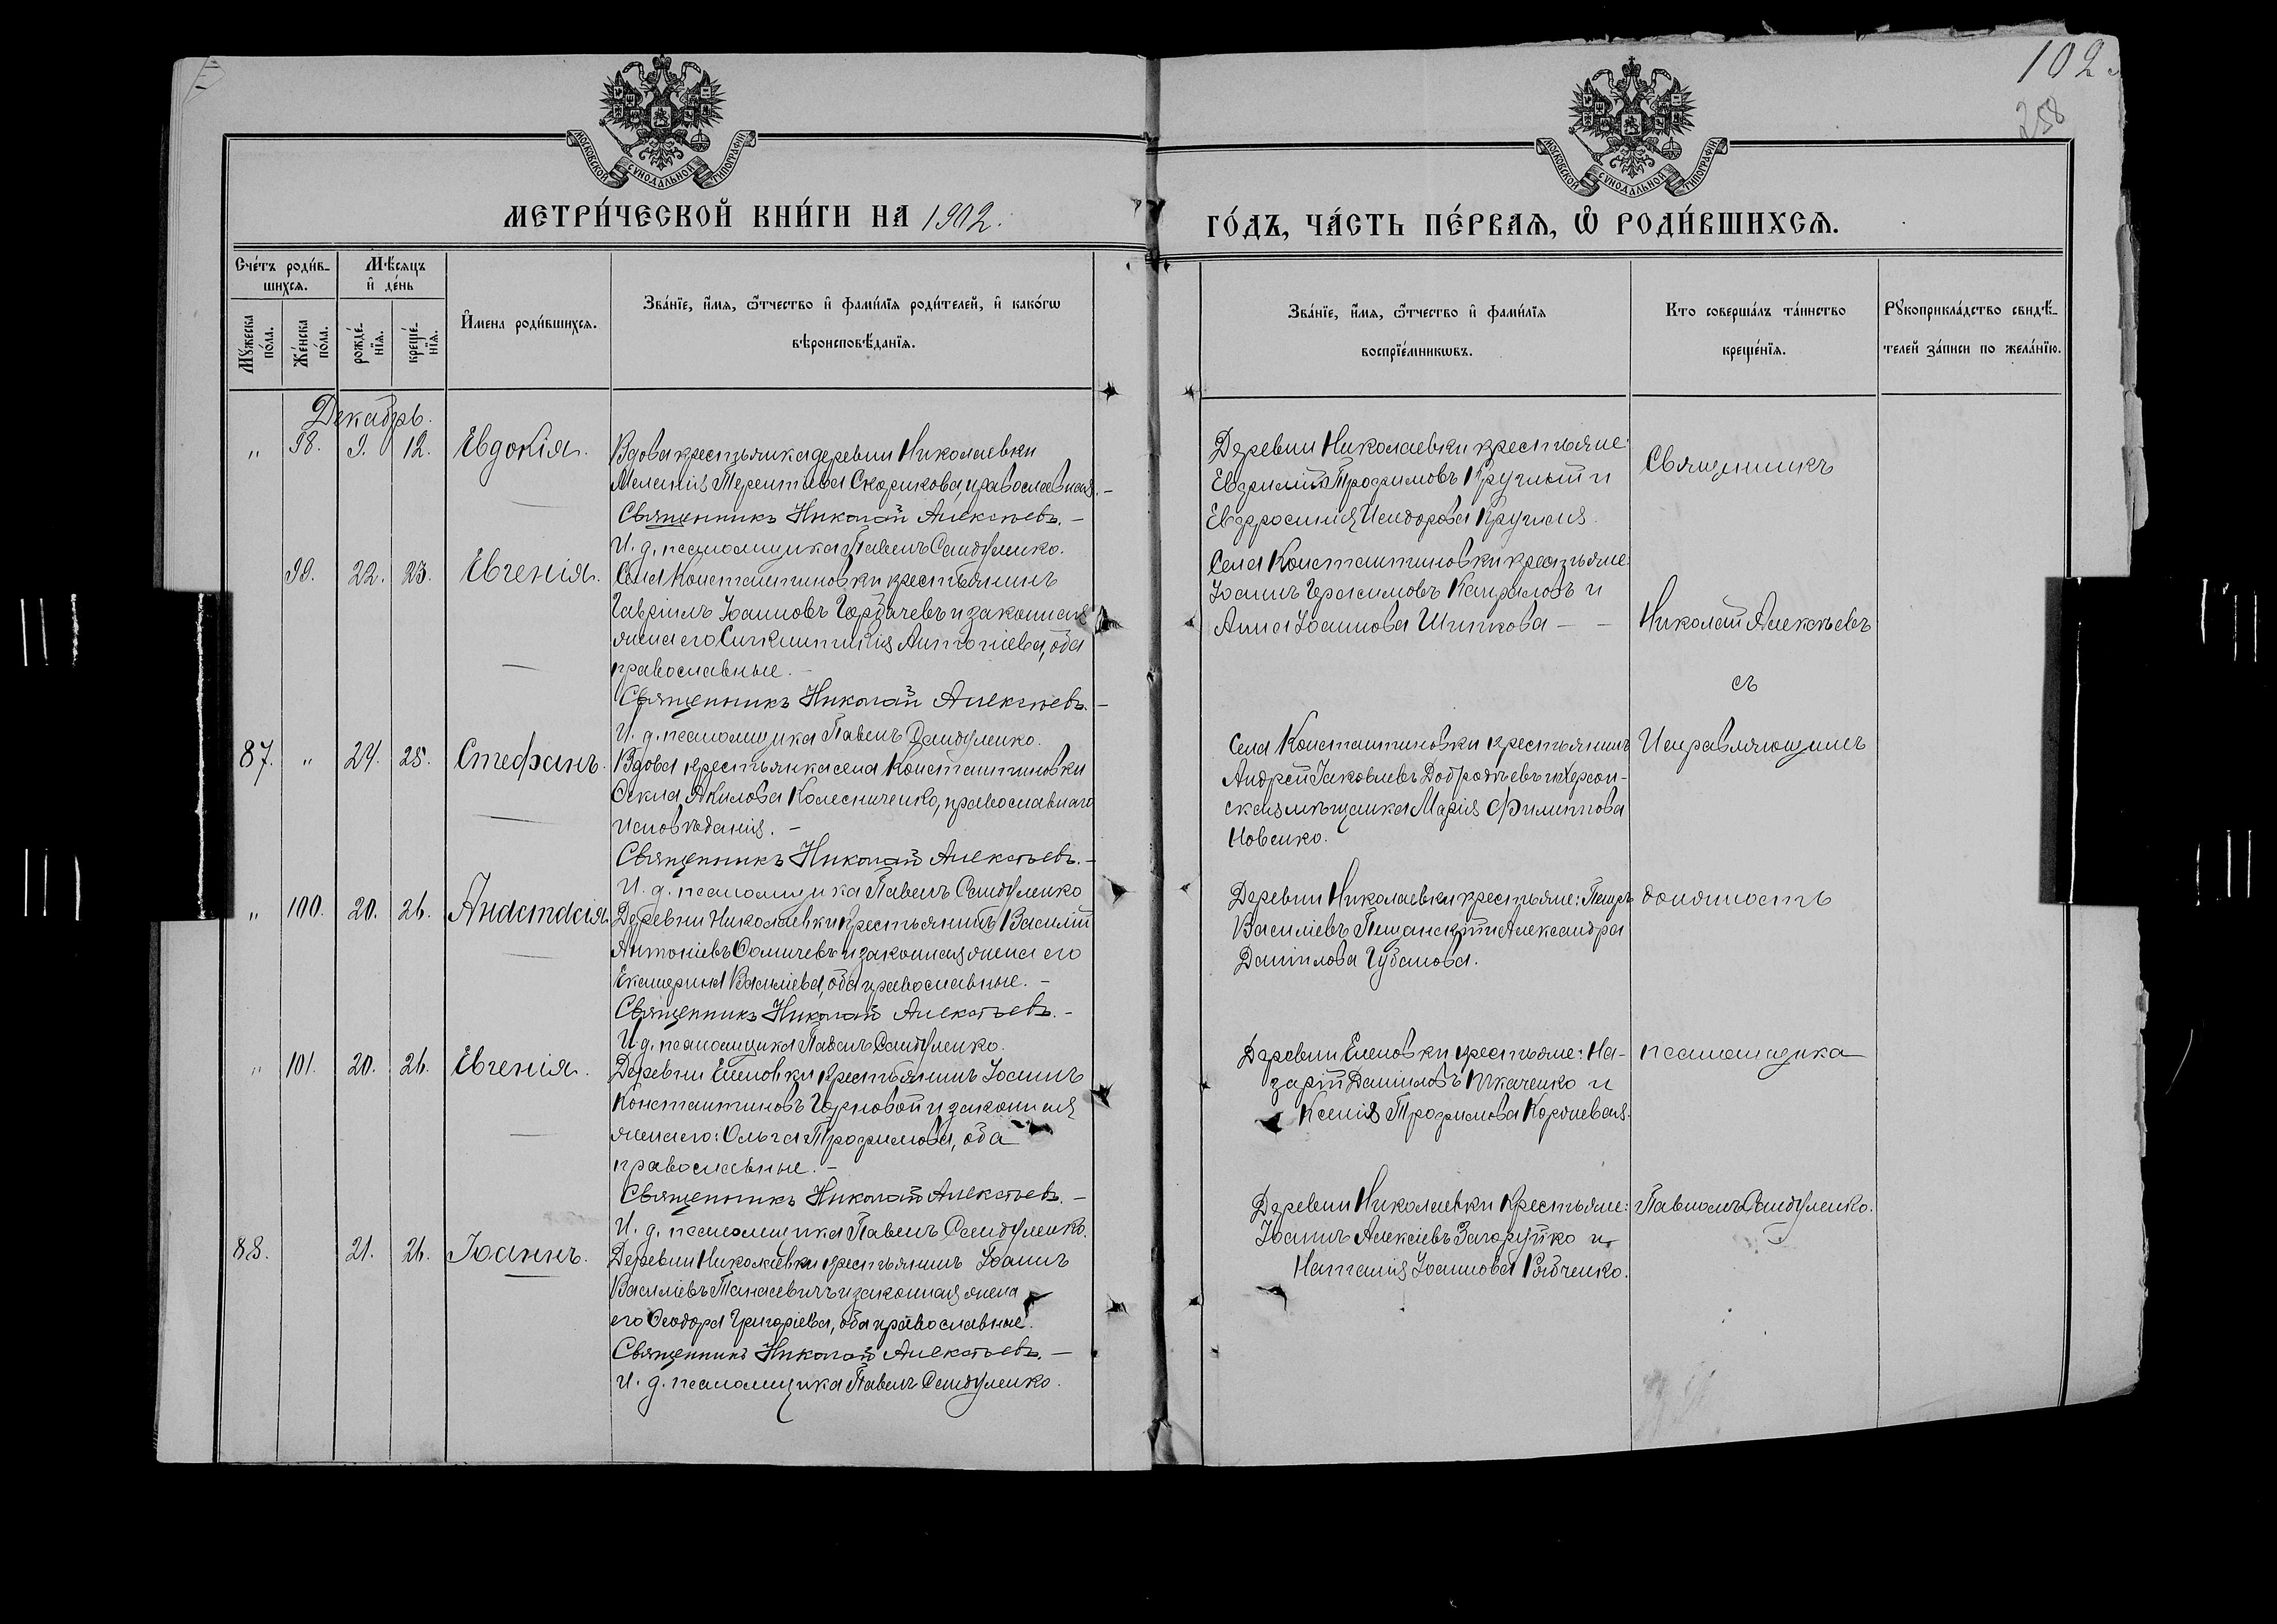 102.
258
МОСКОВСКОЙ СѴНОДАЛЬНОЙ ТИПОГРАФІИ
МОСКОВСКОЙ СѴНОДАЛЬНОЙ ТИПОГРАФІИ
МЕТРИ́ЧЕСКОЙ КНИ́ГИ НА 1902.
ГО́ДЪ, ЧА́СТЬ ПЕ́РВАѦ, Ѡ҆ РОДИ́ВШИХСѦ.
Сче́тъ роди́в-
шихсѧ.
Мꙋ́жеска по́ла.
Же́нска по́ла.
Мѣ́сяцъ
и҆ де́нь
рожде́-
нїѧ.
креще́-
нїѧ.
И҆мена роди́вшихсѧ.
Зва́нїе, и҆́мѧ, ѻ҆́тчество и҆ фами́лїѧ роди́телей, и҆ како́гѡ
вѣроисповѣ́данїѧ.
Зва́нїе, и҆́мѧ, ѻ҆́тчество и҆ фами́лїѧ
воспрїе́мникѡвъ.
Кто соверша́лъ та́инство
креще́нїѧ.
Рꙋкоприкла́дство свидѣ́-
телей за́писи по жела́нїю.
Декабрь.
" 98. 9. 12. Евдокія.
Вдова крестьянка деревни Николаевки
Меланія Терентіева Скорикова, православная. –
Священникъ Николай Алексѣевъ. –
И. д. псаломщика Павелъ Сандуленко.
Деревни Николаевки крестьяне:
Трофимовъ Круглый и
Евфросинія Исидорова Круглая.
99. 22. 23. Евгенія.
Села Константиновки крестьянинъ
Гавріилъ Іоанновъ Горбачевъ и законная
жена его Антоніева, оба
православные. –
Священникъ Николай Алексѣевъ. –
И. д. псаломщика Павелъ Сандуленко.
Села Константиновки крестьяне:
Іоаннъ Герасимовъ и
Анна Іоаннова Шипкова – –
87. " 24. 25. Стефанъ.
Вдова крестьянка села Константиновки
Ѳекла Акилова Колесниченко, православнаго
исповѣданія. –
Священникъ Николай Алексѣевъ. –
И. д. псаломщика Павелъ Сандуленко
Села Константиновки крестьянинъ
Андрей Іаковлевъ и Херсон-
ская мѣщанка Марія Филиппова
Новенко.
" 100. 20. 26. Анастасія.
Деревни Николаевки крестьянинъ Василій
Антоніевъ и законная жена его
Екатерина Василіева, оба православные. –
Священникъ Николай Алексѣевъ. –
И. д. псаломщика Павелъ Сандуленко.
Деревни Николаевки крестьяне: Петръ
Василіевъ Песчанскій и Александра
Даніилова Губанова.
" 101. 20. 26. Евгенія.
Деревни Еленовки крестьянинъ Іоаннъ
Константиновъ и законная
жена его: Ольга Трофимова, оба
православные. –
Священникъ Николай Алексѣевъ. –
И. д. псаломщика Павелъ Сандуленко.
Деревни Еленовки крестьяне: На-
зарій Даніиловъ Ткаченко и
Ксенія Трофимова
88. 21. 26. Іоаннъ.
Деревни Николаевки крестьянинъ Іоаннъ
Василіевъ Танасевичъ и законная жена
его Ѳеодора Григоріева, оба православные.
Священникъ Николай Алексѣевъ. –
И. д. псаломщика Павелъ Сандуленко.
Деревни Николаевки крестьяне:
Іоаннъ Алексіевъ Загоруйко и
Наталія Іоаннова Рябченко.
Священникъ
Николай Алексѣевъ
съ
Исправляющимъ
должность
псаломщика
Павломъ Сандуленко.